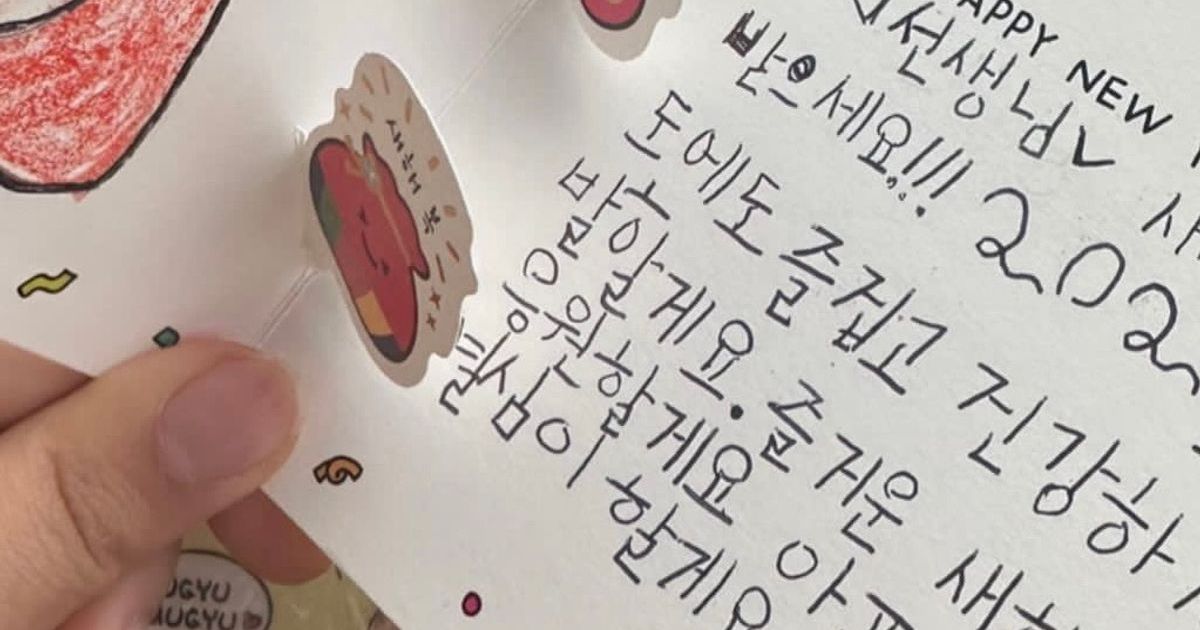 APPY NEW
선생님
받으세요!!! 202
도에도 즐겁고 건강하
게요. 즐거운 새
원할게요 아
심이 할게요
새해 복
UGYU
UGYU